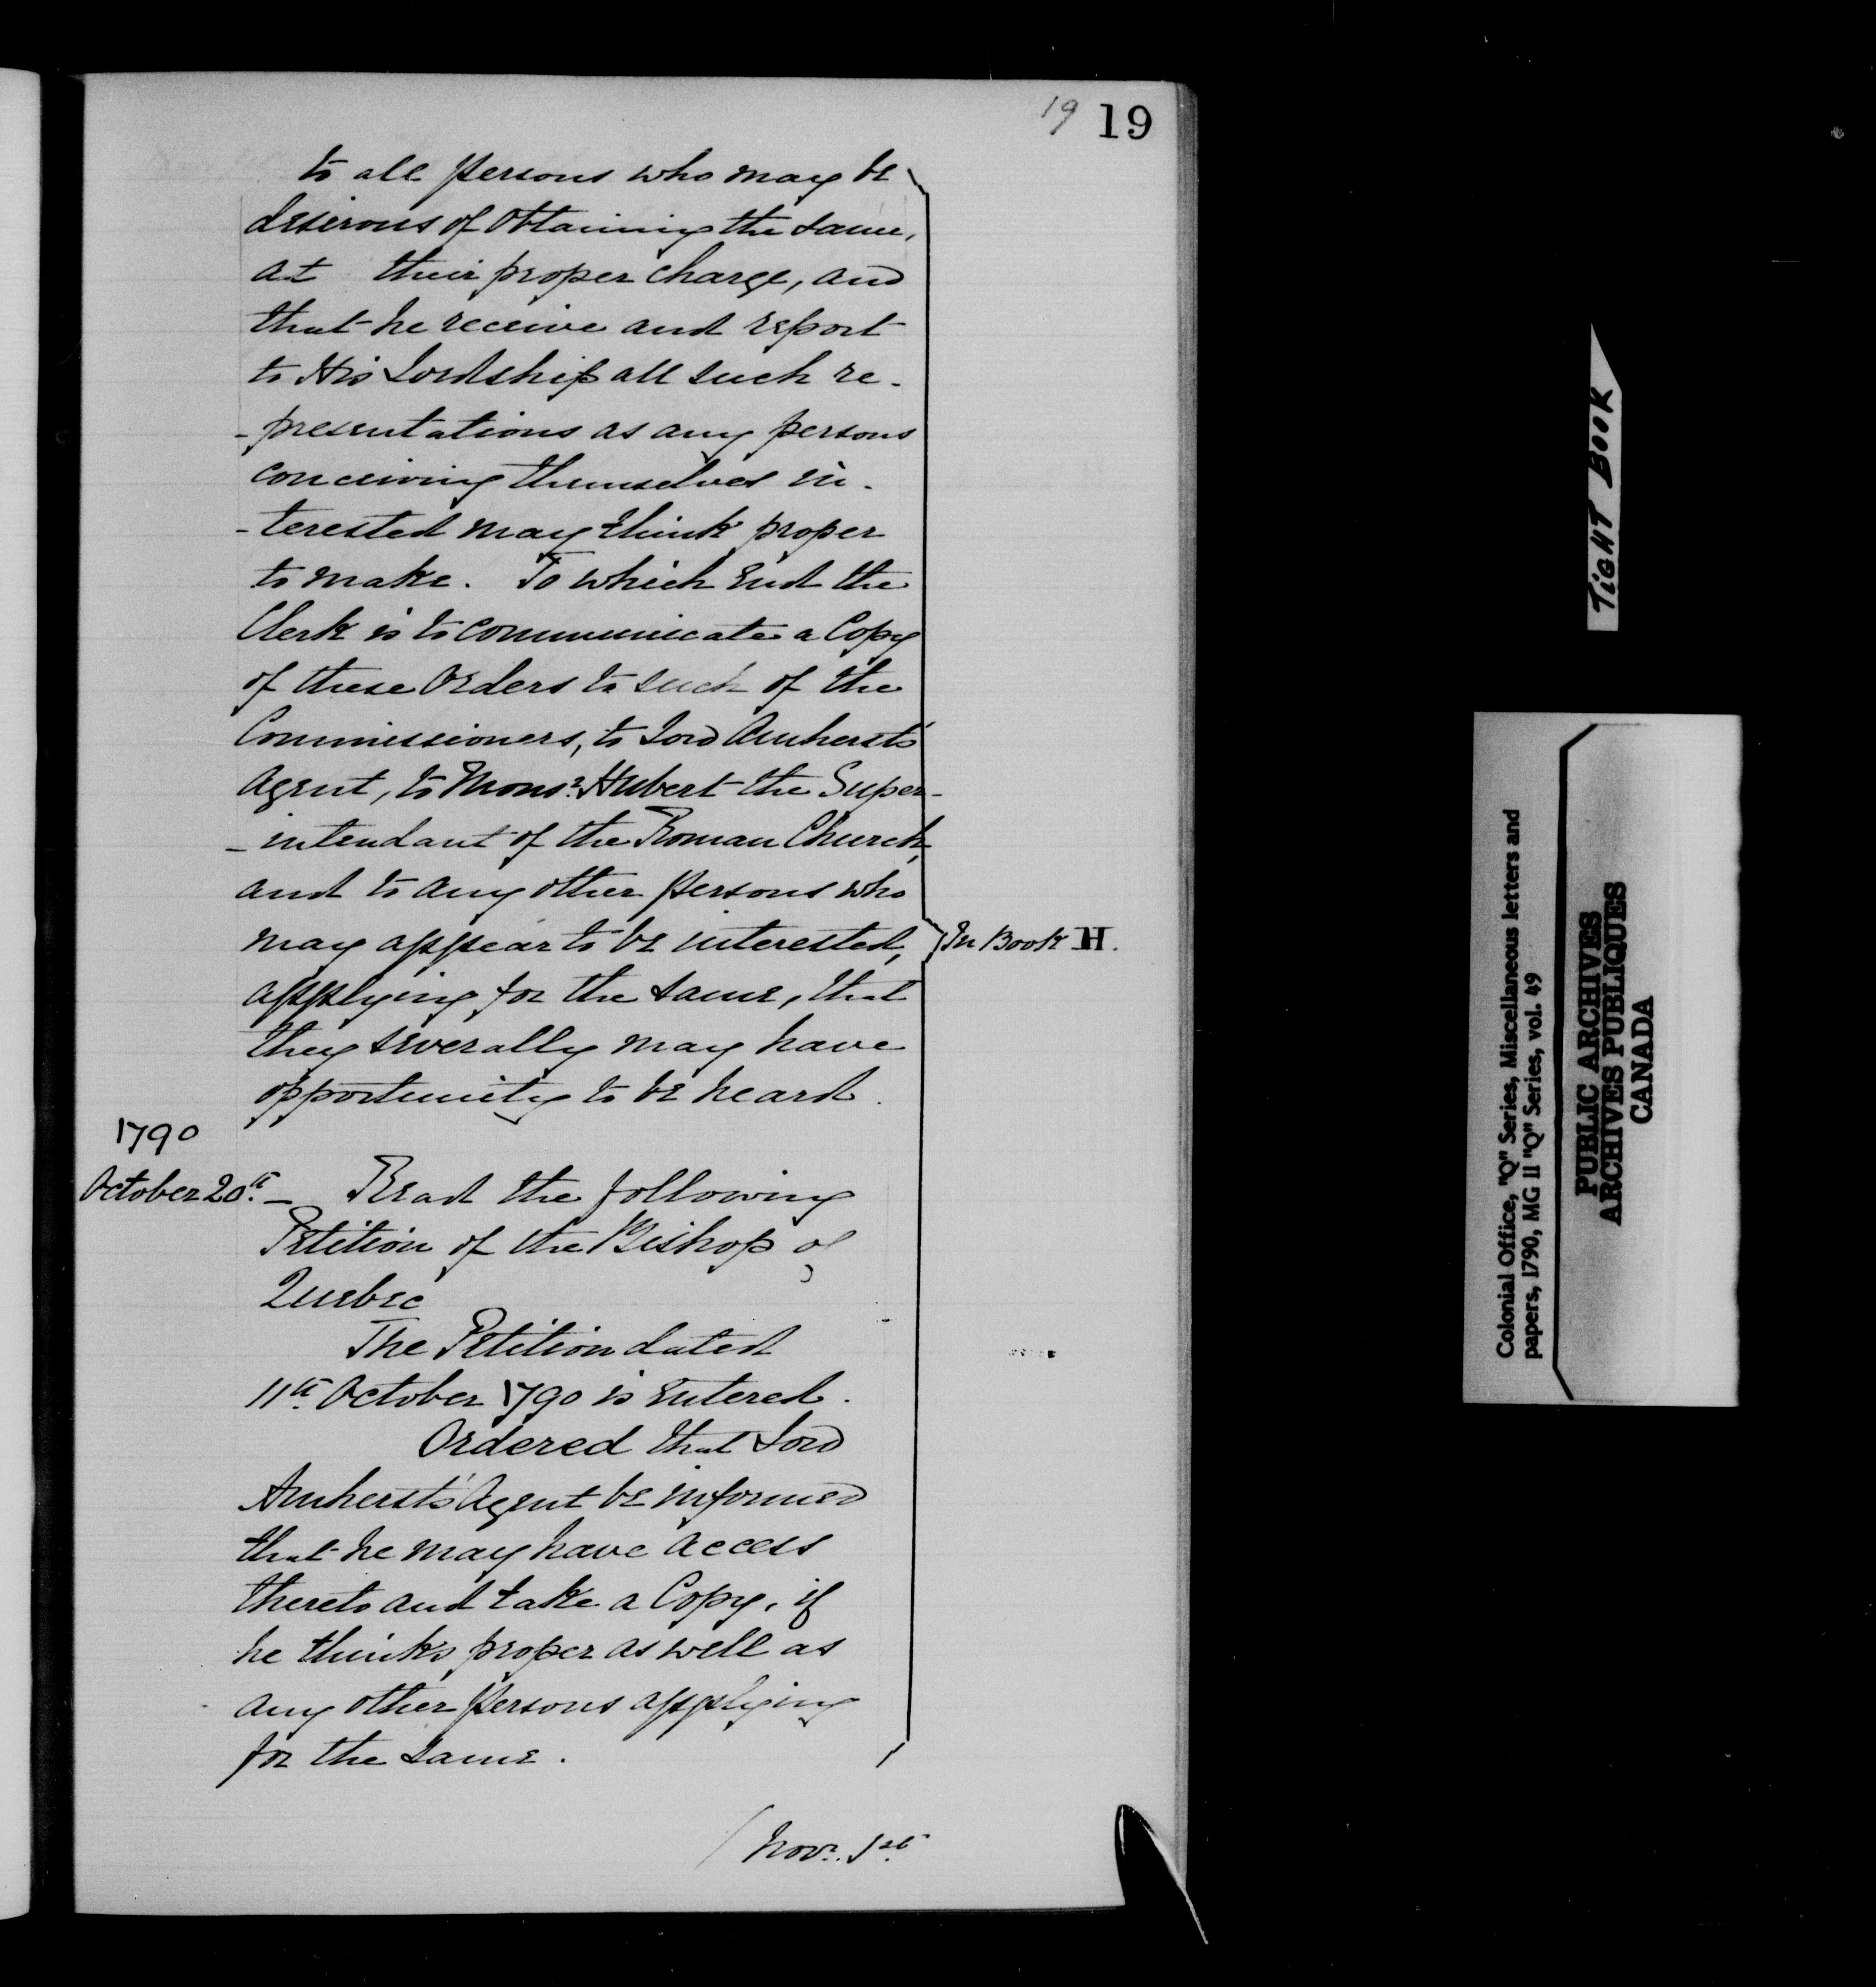 19 19
to all persons who may be
desirous of obtaining the same,
at their proper charge, and
that he receive and report
to His Lordship all such re-
-presentations as any persons
conceiving themselves in-
-terested may think proper
to make. To which End the
Clerk is to communicate a Copy
of these Orders to such of the
Commissioners, to Lord Amherst's
Agent, to Monsr. Hubert the Super-
-intendant of the Roman Church,
and to any other persons who
may appear to be interested,
In Book H.
applying for the same, that
they severally may have
opportunity to be heard.
1790
October 20th. - Read the following
Petition of the Bishop of
Quebec
The Petition dated
11th. October 1790 is Entered.
Ordered that Lord
Amherst's Agent be informed
that he may have access
thereto and take a Copy, if
he thinks proper as well as
any other persons applying
for the same.
/ Novr. 1st.
TIGHT BOOK
Colonial Office, "Q" Series, Miscellaneous letters and
papers, 1790, MG 11 "Q" Series, vol. 49
PUBLIC ARCHIVES
ARCHIVES PUBLIQUES
CANADA